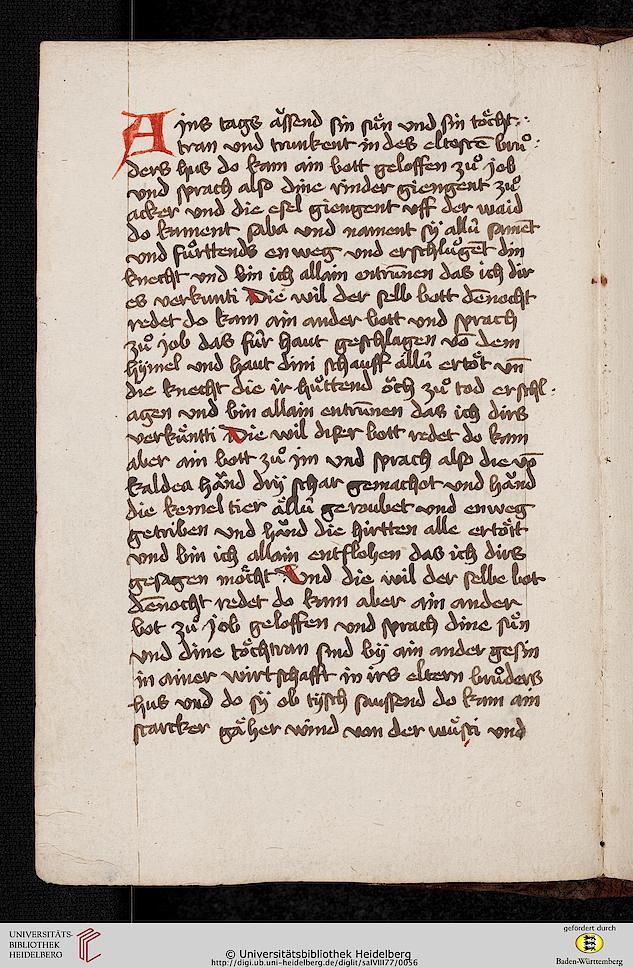 Ains tags aͤssend sin suͤn und sin toͤcht-
tran und trunkent in des eltesten bruͦ-
ders hus do kam ain bott geloffen zuͦ job
und sprach also dine rinder giengent zuͦ
acker und die esel giengent uff der waid
do kament saba und nament sy allü samēt
und fuͦrttends enweg und erschluͦgēt din
knecht und bin ich allain entrunen das ich dir
es verkunti Die wil der selb bott dēnocht
redet do kam ain ander bott und sprach
zuͦ job das für haut geschlagen vō dem
hymel und haut dini schauff ällü ertöt vn̄
die knecht die ir huͤttend öch zuͦ tod erschl-
agen und bin allain entrunen das ich dirs
verkuͤntti Die wil diser bott redet do kam
aber ain bott zuͦ im und sprach also die vō
kaldea händ dry schar gemachot und händ
die kemel tier ällü geroubet und enweg
getriben und händ die hirtten alle ertött
und bin ich allain entflohen das ich dirs
gesagen möcht Und die wil der selbe bot
dēnocht redet do kam aber ain ander
bot zuͦ Job geloffen und sprach dine suͤn
und dine töchtran sind by ain ander gesin
in ainer wirtschafft in irs eltern bruͦders
hus und do sy ob tysch saussend do kam ain
starcker gäher wind von der wuͤsti und
UNIVERSITÄTS-
BIBLIOTHEK
HEIDELBERG
© Universitätsbibliothek Heidelberg
http://digi.ub.uni-heidelberg.de/diglit/salVIII77/0056
gefördert durch
Baden-Württemberg